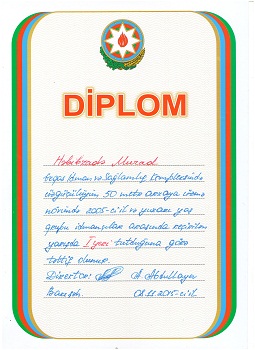 DİPLOM
Həbibzadə Murad
İdman və Sağlamlıq Kompleksində
üzgüçülüyün 50 metr arxaya üzmə
növündə 2005-ci il və yuxarı yaş
qrupu idmançılar arasında keçirilən
yarışda I yeri tutduğuna görə
təltif olunur.
Direktor: A. Abdullayev
08.11.2015-ci il